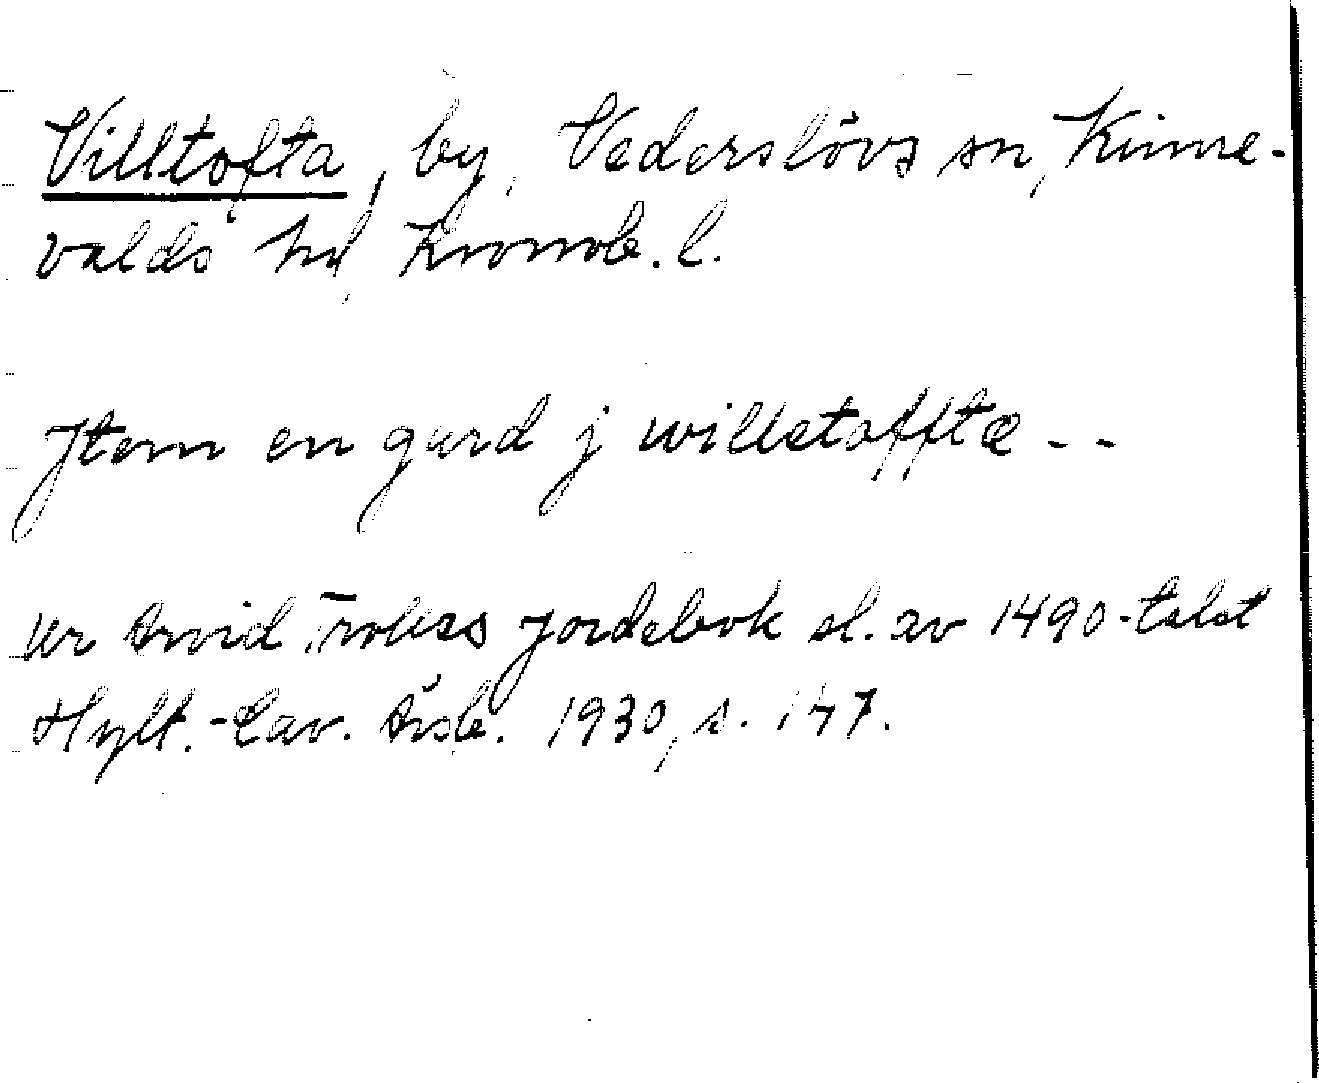 Villtofta, by, Vederslövs sn, Kinne-
valds hd, Kronob. l.
Jtem en gard j willetofftæ - -
Ur Arvid Trolles jordebok sl. av 1490-talet
Hylt.-Cav. Årsb. 1930, s. 147.